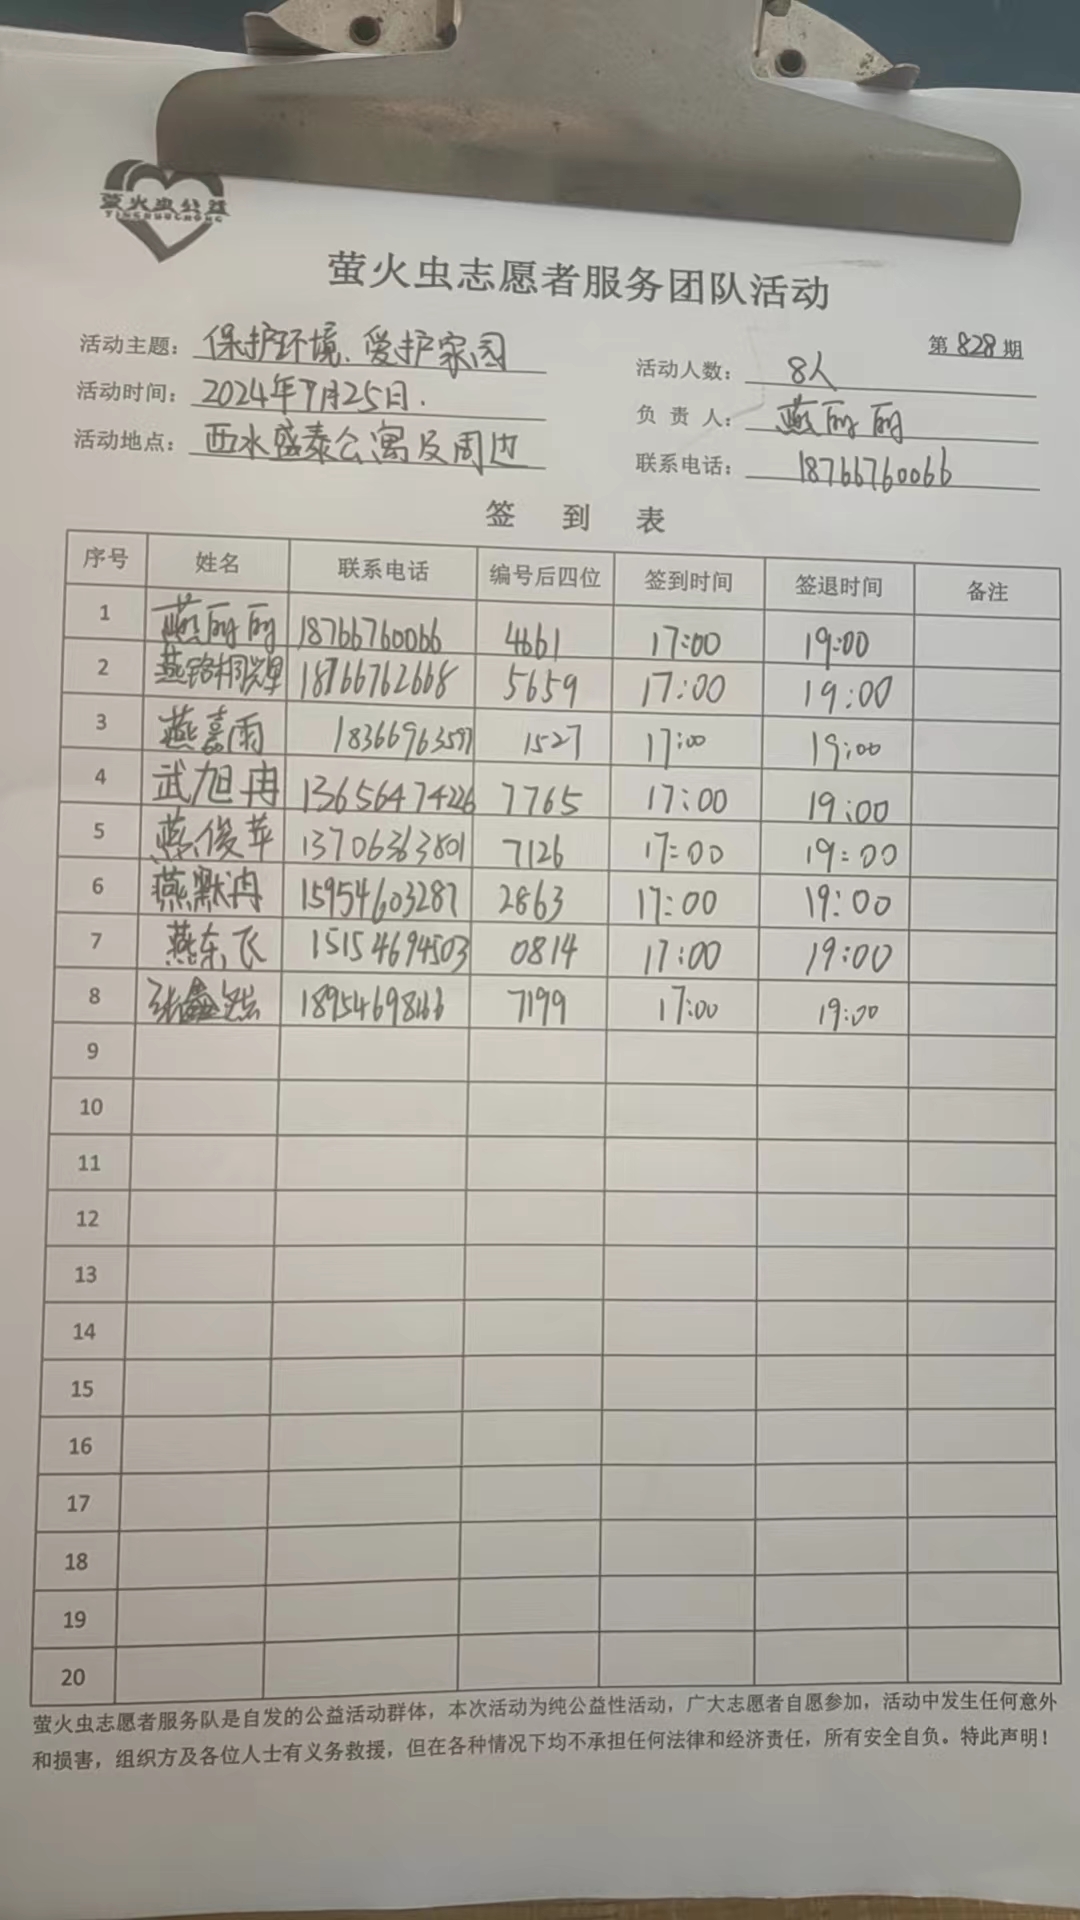 萤火虫公益
YINGHUOCHONG
萤火虫志愿者服务团队活动
第 828 期
活动主题：保护环境、爱护家园
活动人数：8人
活动时间：2024年7月25日.
负 责 人：燕丽丽
活动地点：西水盛泰公寓及周边
联系电话：18766760066
签 到 表
序号 姓名 联系电话 编号后四位 签到时间 签退时间 备注
1 燕丽丽 18766760066 4661 17:00 19:00
2 燕 18766762668 5659 17:00 19:00
3 燕嘉雨 18366963597 1527 17:00 19:00
4 武旭冉 13656474226 7765 17:00 19:00
5 燕俊苹 13706363801 7126 17:00 19:00
6 燕默冉 15954603287 2863 17:00 19:00
7 燕东飞 15154694503 0814 17:00 19:00
8 张鑫 18954698166 7199 17:00 19:00
9
10
11
12
13
14
15
16
17
18
19
20
萤火虫志愿者服务队是自发的公益活动群体，本次活动为纯公益性活动，广大志愿者自愿参加，活动中发生任何意外
和损害，组织方及各位人士有义务救援，但在各种情况下均不承担任何法律和经济责任，所有安全自负。特此声明！